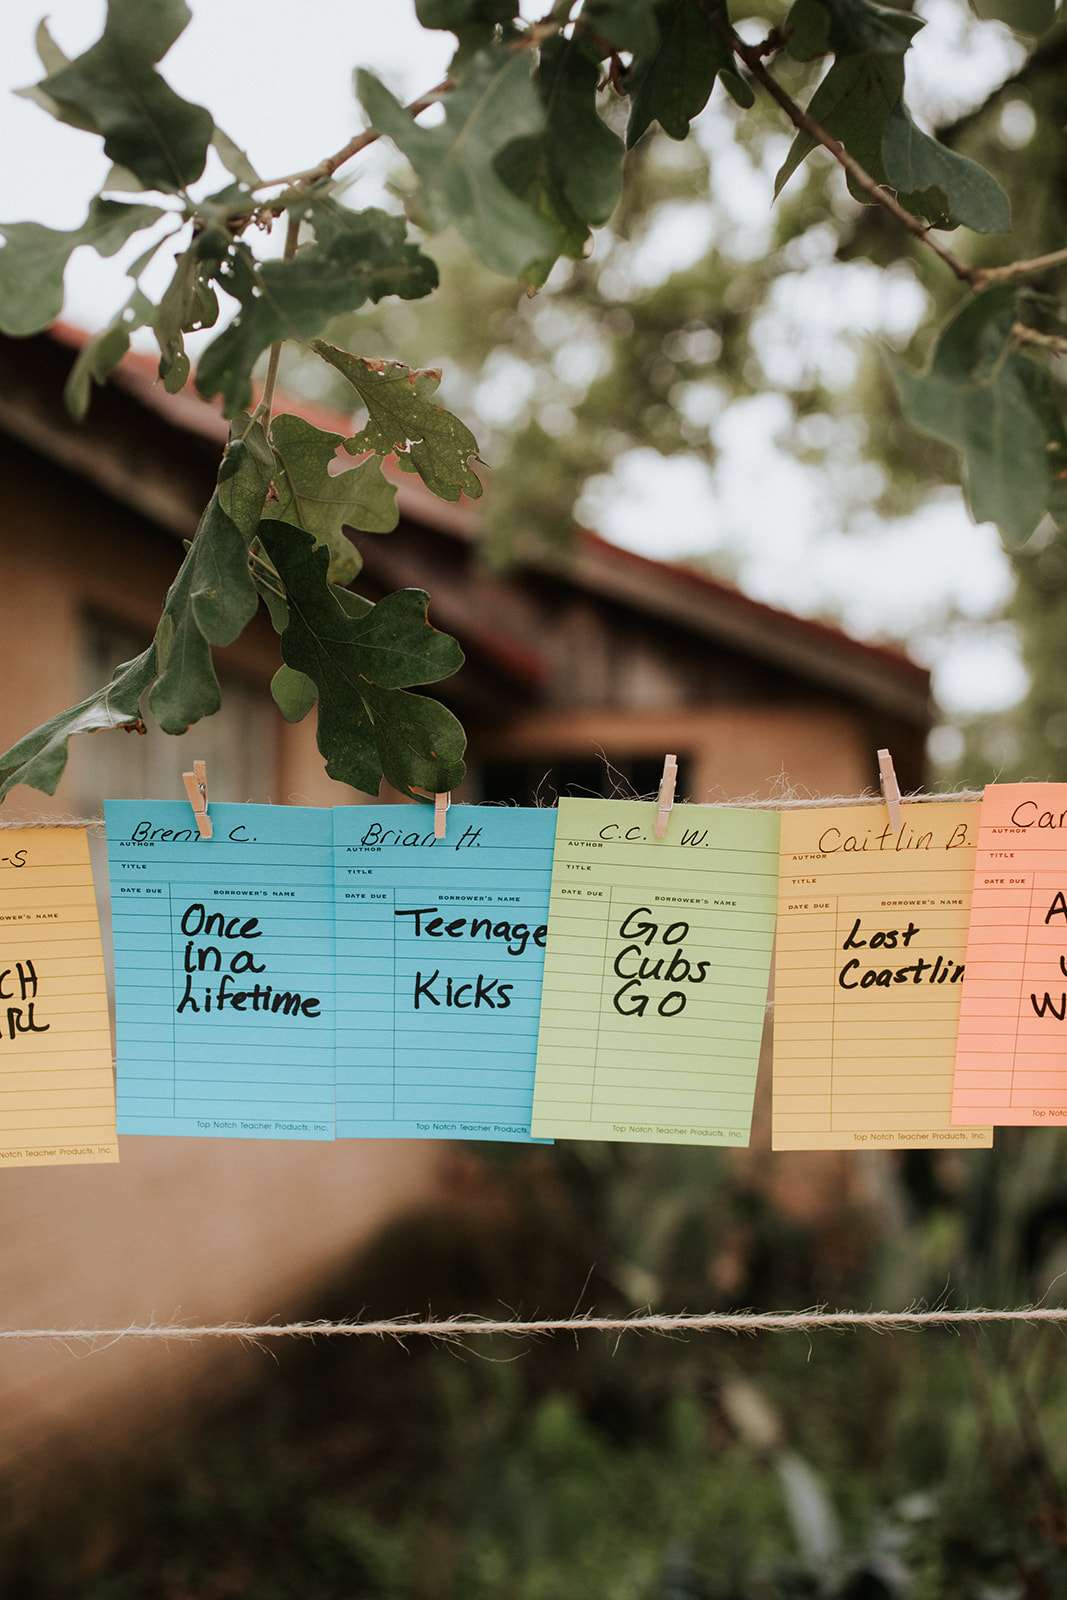 -S
BORROWER'S NAME
Notch Teacher Products, Inc.
Brent C.
AUTHOR
TITLE
DATE DUE BORROWER'S NAME
Once
in a
Lifetime
Top Notch Teacher Products, Inc.
Brian H.
AUTHOR
TITLE
DATE DUE BORROWER'S NAME
Teenage
Kicks
Top Notch Teacher Products, Inc.
C.C. W.
AUTHOR
TITLE
DATE DUE BORROWER'S NAME
Go
Cubs
Go
Top Notch Teacher Products, Inc.
Caitlin B.
AUTHOR
TITLE
DATE DUE BORROWER'S NAME
Lost
Coastlin
Top Notch Teacher Products, Inc.
Car
AUTHOR
TITLE
DATE DUE
A
W
Top No